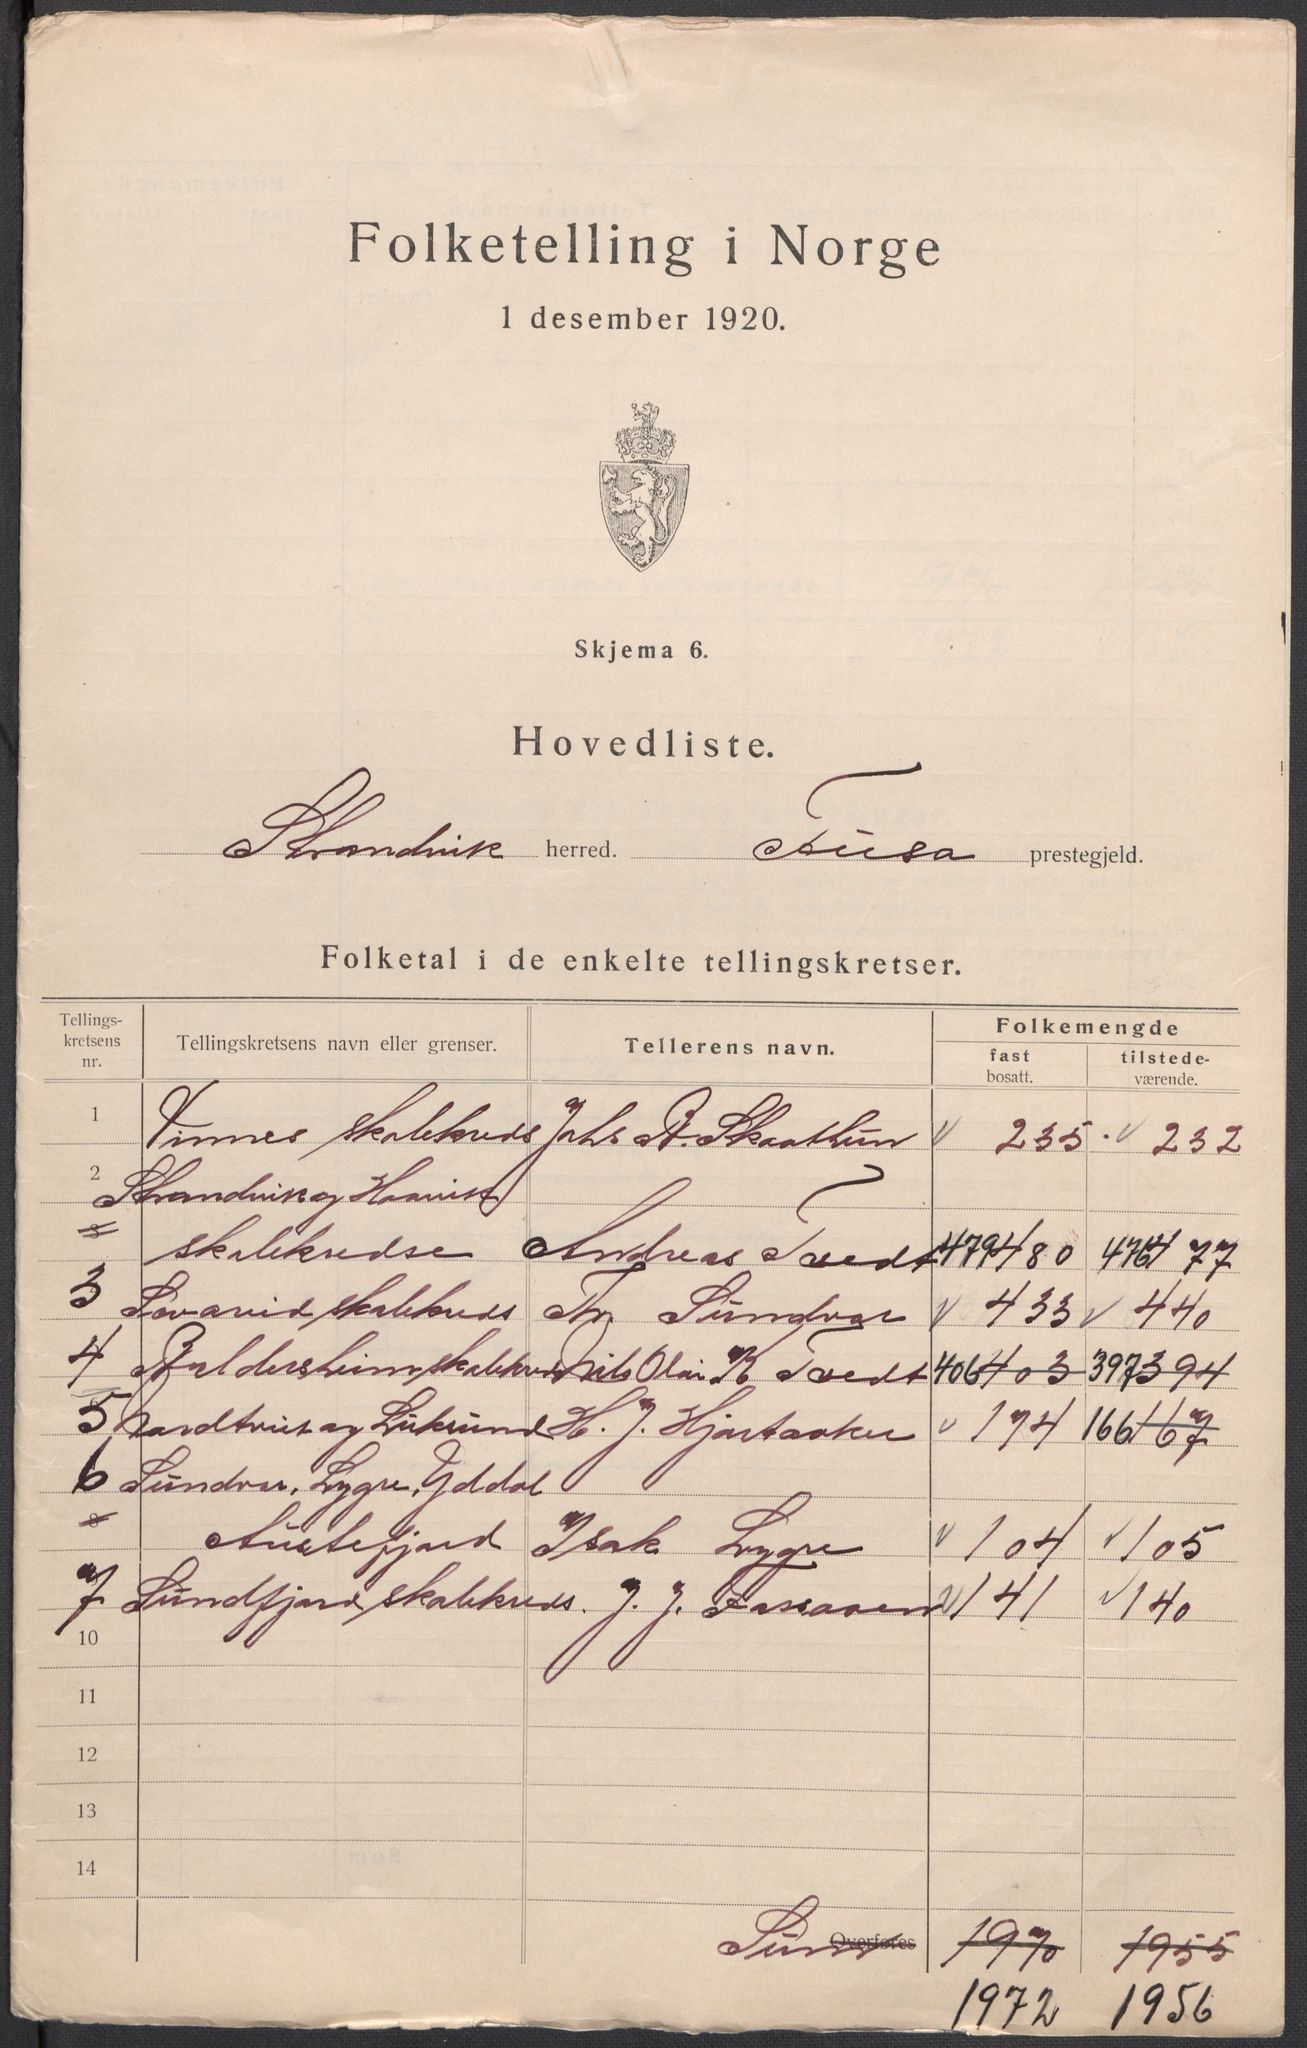 Folketelling i Norge
1 desember 1920.
Skjema 6.
Hovedliste.
Strandvik herred. Fusa prestegjeld.
Folketal i de enkelte tellingskretser.
Tellings-kretsens nr. Tellingskretsens navn eller grenser. Tellerens navn. Folkemengde
fast bosatt. tilstede-værende.
1 Vinnes skolekreds Johs R. Skaathun 235 232
2 Strandvik og Haavik
skolekredse Andreas Tvedt 479 480 476 477
3 Sævareid skolekreds Sundvor 433 440
4 Baldersheim skolekreds Nils Olai K Tvedt 406 403 397 394
5 Nordtveit og Luksund H. J. Hjartaaker 174 166 167
6 Sundvor, Lygre, Yddal
8 Austefjord Isak Lygre 104 105
7 Sundfjord skolekreds. J. J. 141 140
10
11
12
13
14
Sum Overføres 1970 1955
1972 1956